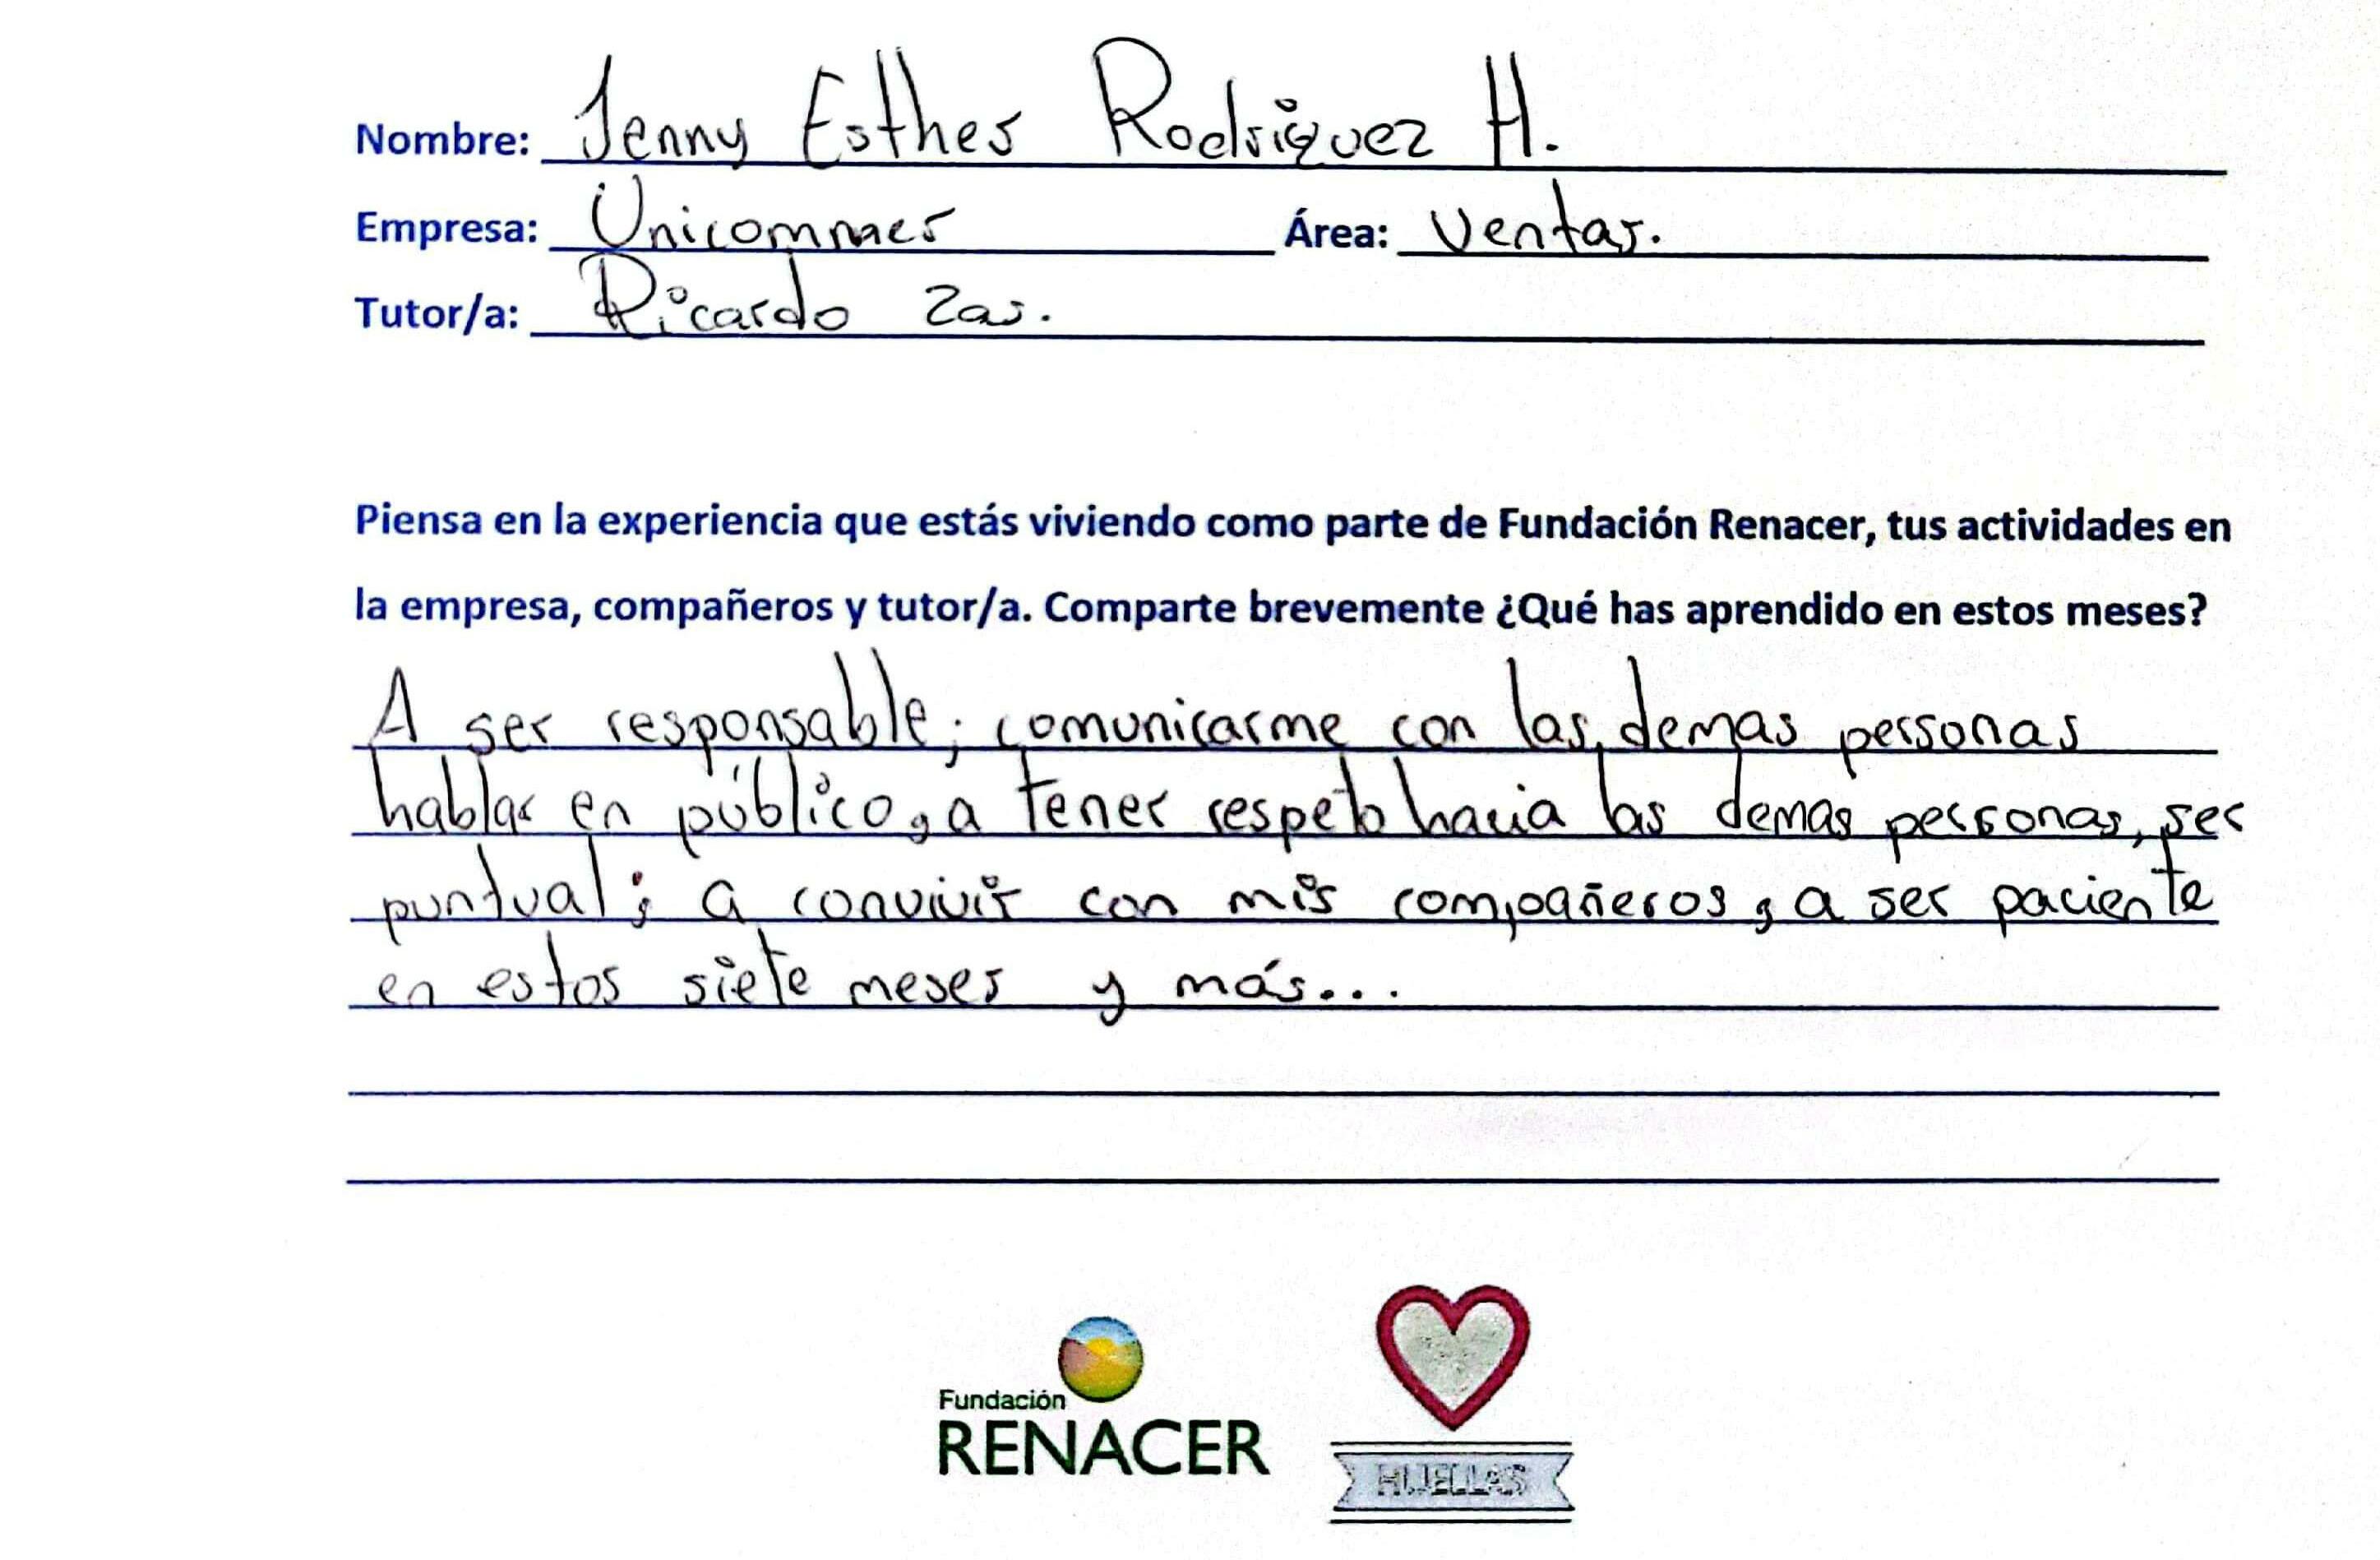 Nombre: Jenny Esther Rodriguez H.
Empresa: Unicommer Área: Ventas.
Tutor/a: Ricardo Zas.
Piensa en la experiencia que estás viviendo como parte de Fundación Renacer, tus actividades en
la empresa, compañeros y tutor/a. Comparte brevemente ¿Qué has aprendido en estos meses?
A ser responsable; comunicarme con las demas personas
hablar en público, a tener respeto hacia las demas personas, ser
puntual; a convivir con mis compañeros, a ser paciente
en estos siete meses y más...
Fundación
RENACER
HUELLAS